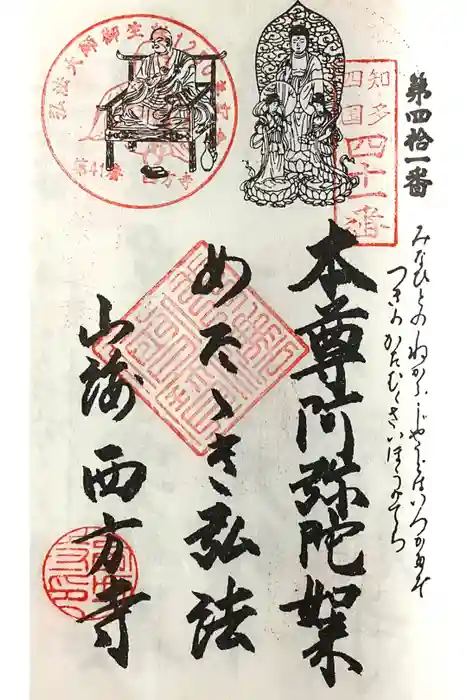 第四拾一番
みなひとの ねがふ じやうどは
つきの かたむく さいほうのてら
知多
四国
四十一番
弘法大師御生誕1250年
第41番 西方寺
本尊阿弥陀如来
めたゝき弘法
山海 西方寺